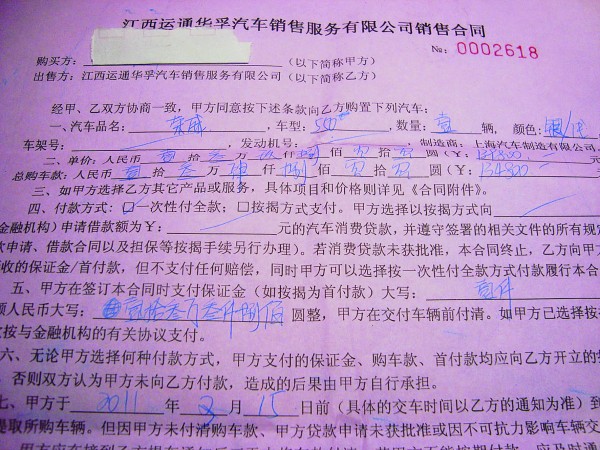 江西运通华孚汽车销售服务有限公司销售合同
№: 0002618
购买方: (以下简称甲方)
出售方: 江西运通华孚汽车销售服务有限公司 (以下简称乙方)
经甲、乙双方协商一致, 甲方同意按下述条款向乙方购置下列汽车:
一、汽车品名: 荣威, 车型: 550, 数量: 壹 辆, 颜色: 银
车架号: 发动机号: 制造商: 上海汽车制造有限公司
二、单价: 人民币 壹 拾 叁 万 仟 捌 佰 拾 圆 (Y: 134800
总购车款: 人民币 壹 拾 叁 万 肆 仟 捌 佰 拾 圆 (Y: 134800
三、如甲方选择乙方其它产品或服务, 具体项目和价格则详见《合同附件》。
四、付款方式: ☑一次性付全款; □按揭方式支付。甲方选择以按揭方式向
金融机构) 申请借款额为Y: 元的汽车消费贷款, 并遵守签署的相关文件的所有规定
款申请、借款合同以及担保等按揭手续另行办理)。若消费贷款未获批准, 本合同终止, 乙方向甲方
收的保证金/首付款, 但不支付任何赔偿, 同时甲方可以选择按一次性付全款方式付款履行本合
五、甲方在签订本合同时支付保证金 (如按揭为首付款) 大写: 壹仟
额人民币大写: 壹拾叁万叁仟捌佰 圆整, 甲方在交付车辆前付清。如甲方已选择按
款按与金融机构的有关协议支付。
六、无论甲方选择何种付款方式, 甲方支付的保证金、购车款、首付款均应向乙方开立的
否则双方认为甲方未向乙方付款, 造成的后果由甲方自行承担。
七、甲方于 2011 年 2 月 15 日前 (具体的交车时间以乙方的通知为准) 到
提取所购车辆。但因甲方未付清购车款、甲方贷款申请未获批准或因不可抗力影响车辆交